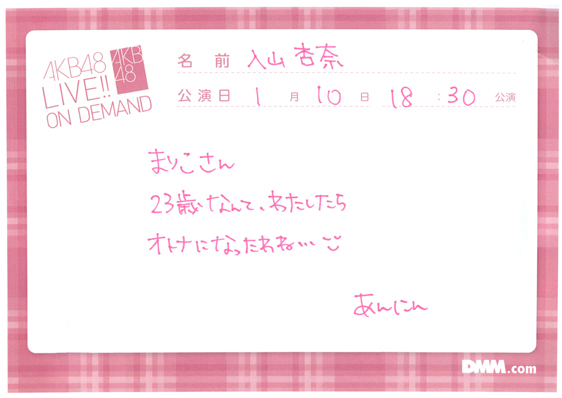 AKB48
LIVE!!
ON DEMAND
AKB
48
名 前 入山杏奈
公演日 1 月 10 日 18 : 30 公演
まりこさん
23歳なんて、わたしたら
オトナになったわね…
あんにん
DMM.com